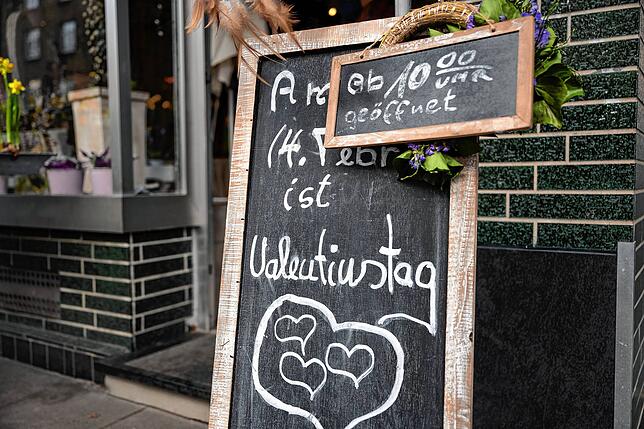 Am
14. Febr
ist
Valentinstag
ab 10 00 UHR
geöffnet